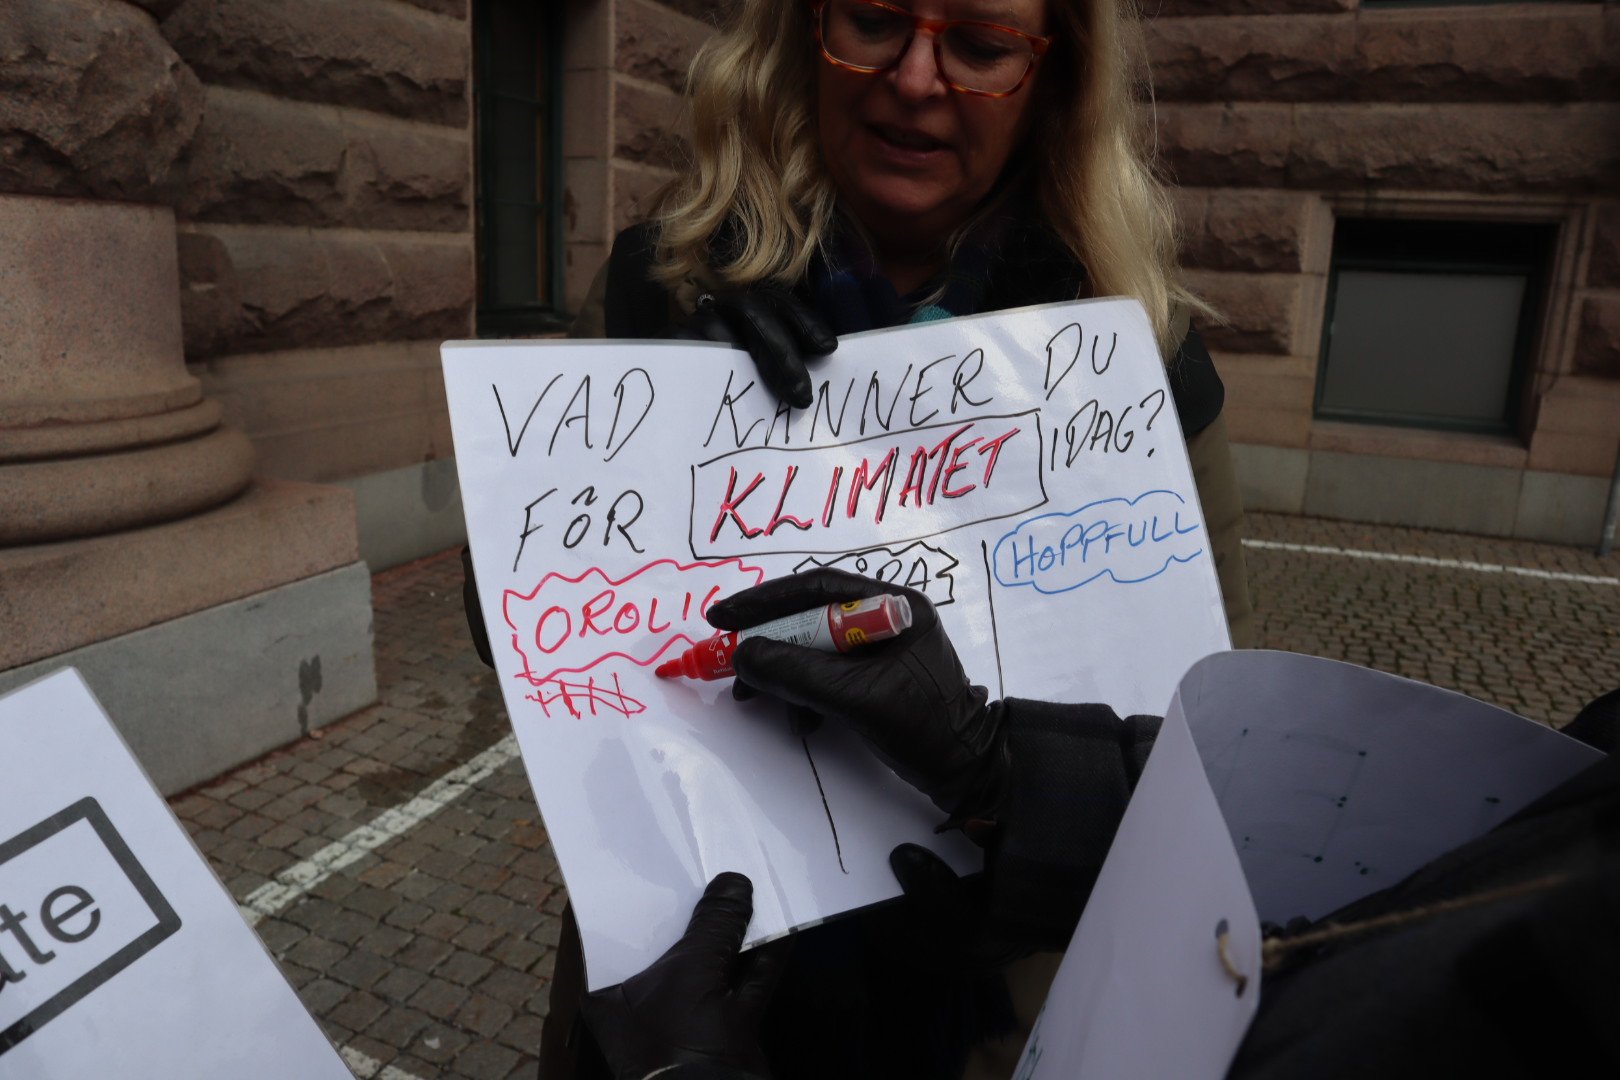 VAD KÄNNER DU
FÖR KLIMATET IDAG?
OROLIG
HOPPFULL
te